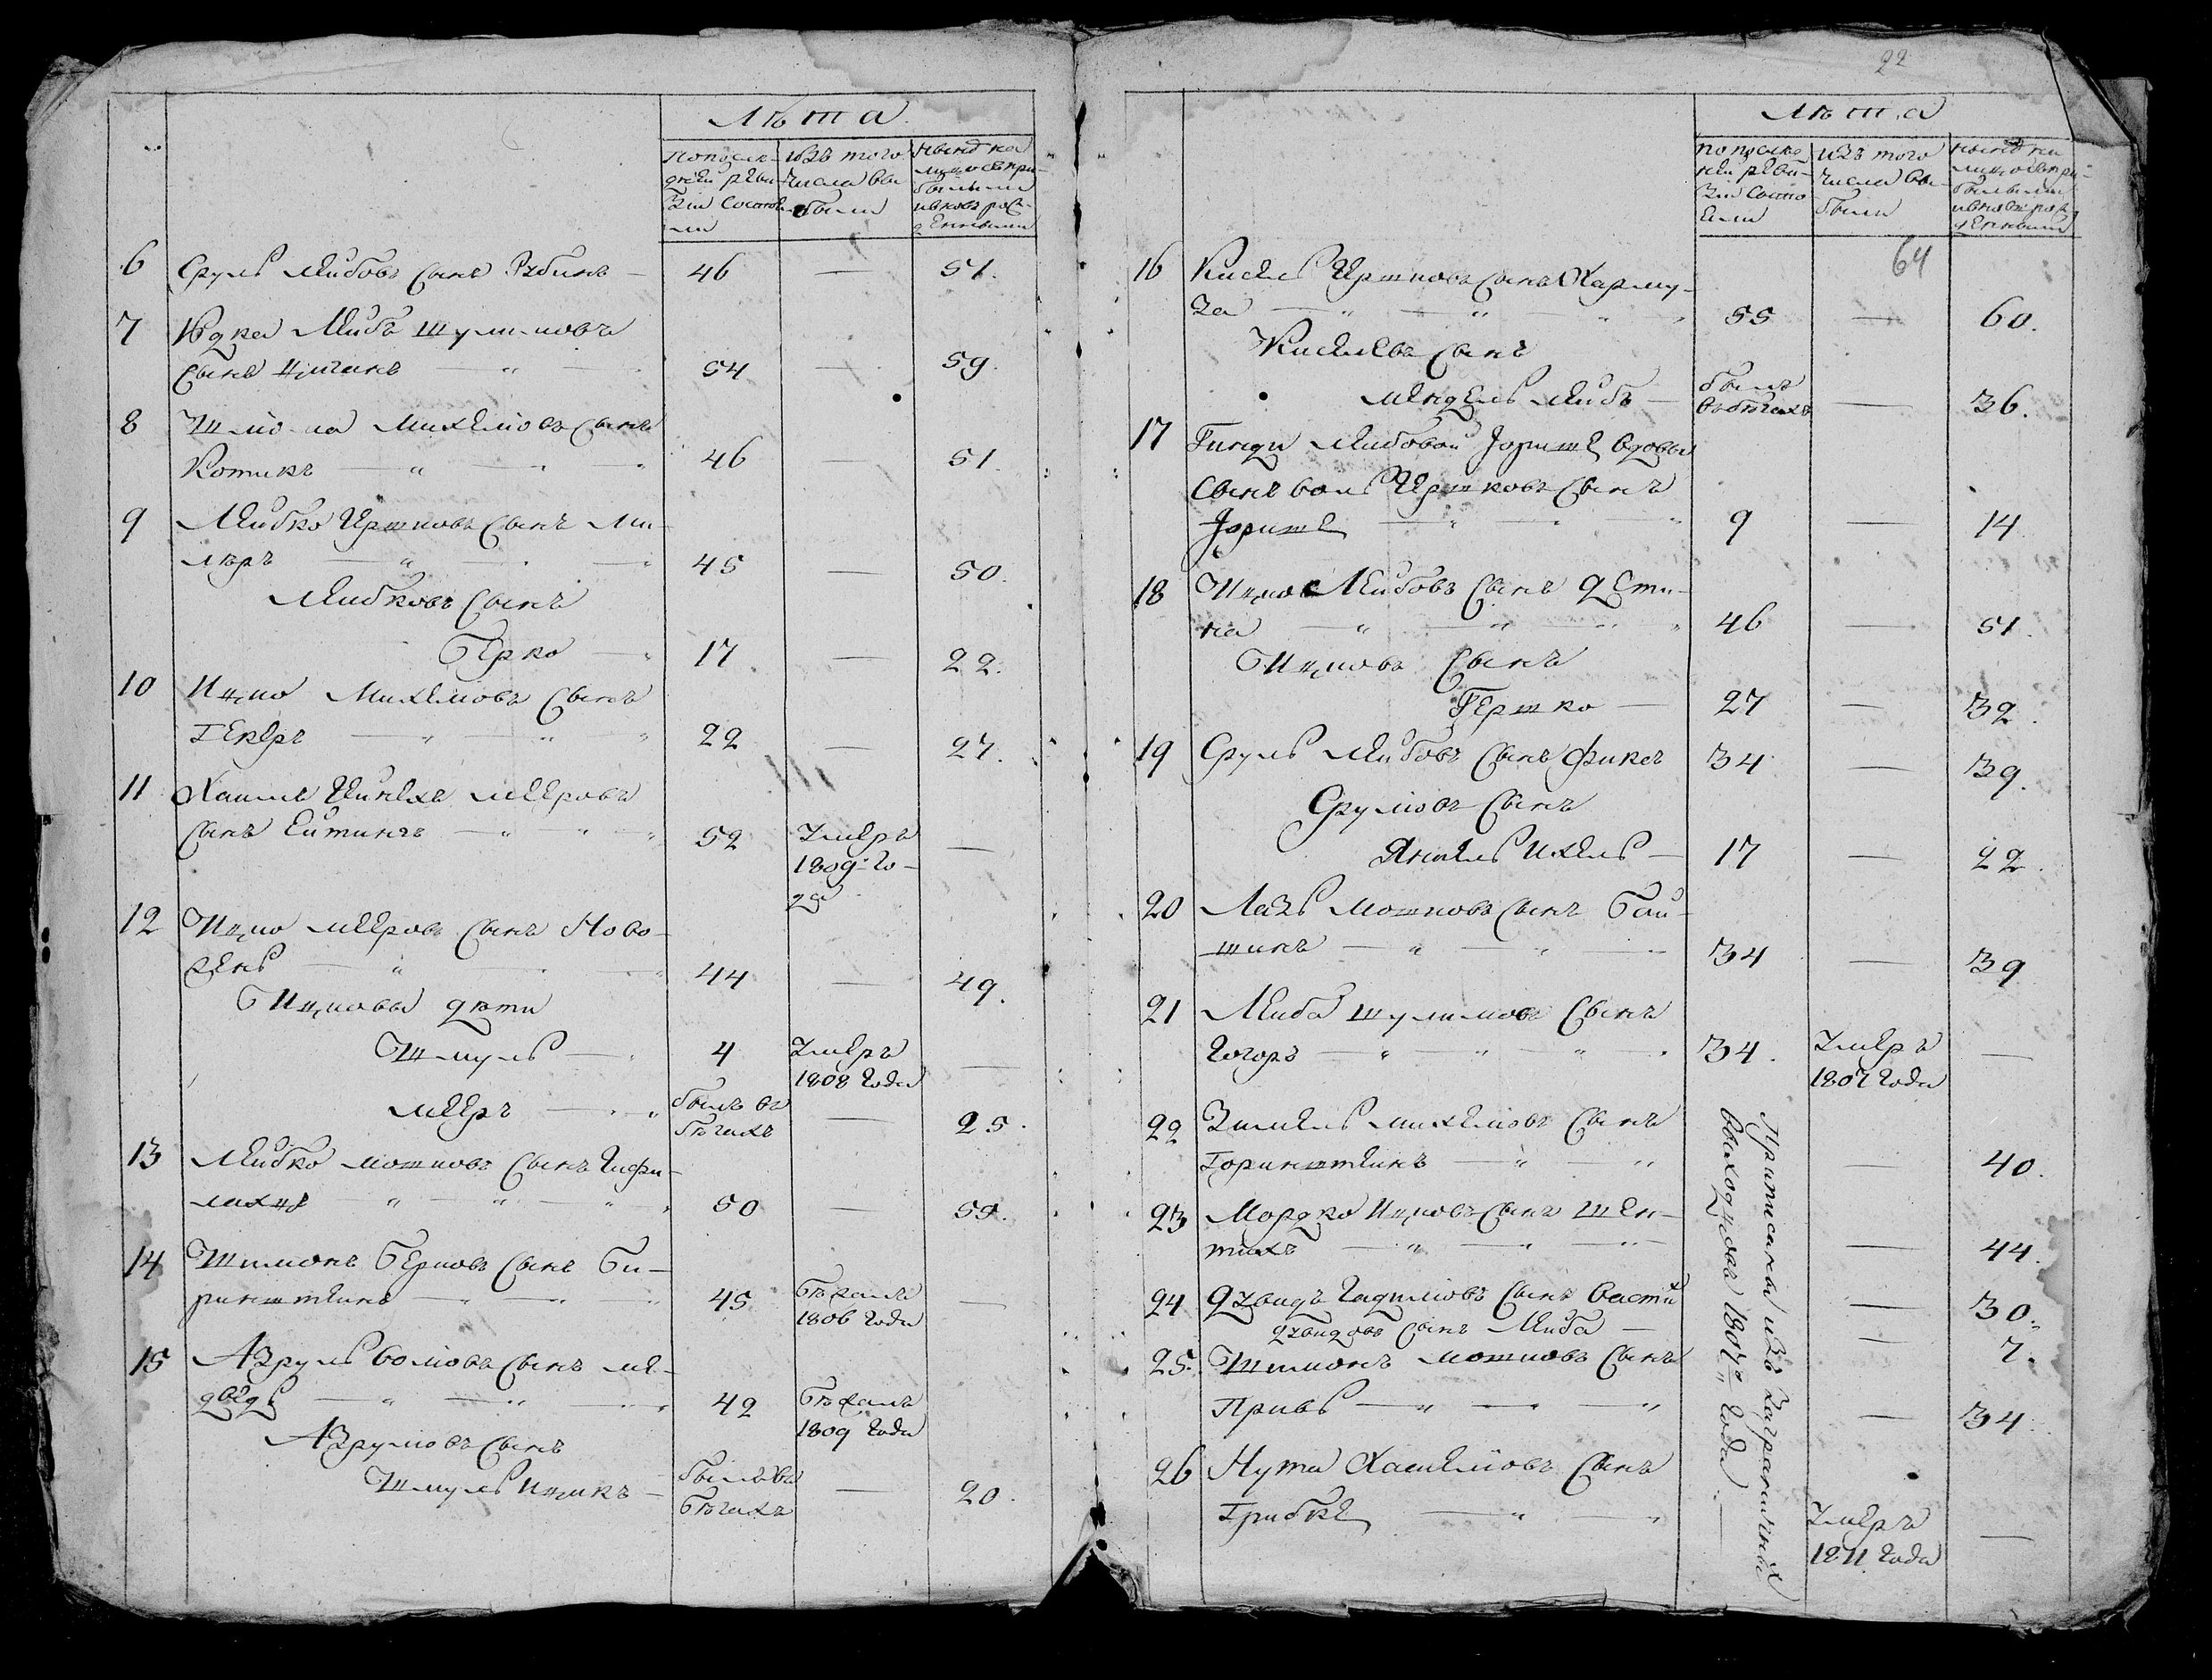 Лѣта
По послѣ-
дней реви-
зіи состоя-
ли
изъ того
числа вы-
были
нынѣ на
лицо съ при-
былыми
и вновь рож-
денными
6 Сруль Лейбовъ сынъ Рубинъ — 46 — 51.
7 Юдка Лейбъ Шулимовъ
сынъ Цыганъ — " — 54 — 59.
8 Шліома Михелiовъ сынъ
Котикъ — " — " 46 — 51.
9 Лейбко Ершковъ сынъ Ми-
лѣръ — " — " 45 — 50.
Лейбковъ сынъ
Берко — 17 — 22.
10 Ицко Михелiовъ сынъ
Гекеръ — " — " 22 — 27.
11 Хаимъ Ейнехъ Мееровъ
сынъ Ейтингъ — " — " 52 Умеръ —
1809 го-
да
12 Ицко Мееровъ сынъ Ново-
сень — " — 44 — 49.
Ицковы дѣти
Шмуль — 4 Умеръ —
1808 года
Мееръ — " былъ въ — 25.
бѣгахъ
13 Лейбко Мошковъ сынъ
— " — " — " 50 — 55.
14 Шимонъ Берковъ сынъ Би-
ринштеинъ — " — " 45 Бѣжалъ —
1806 года
15 Азруль Волiовъ сынъ Ме-
двѣдь — " — " 42 Бѣжалъ —
1809 года
Азрулiовъ сынъ
Шмуль Ицикъ — былъ въ — 20.
бѣгахъ
22
Лѣта
по послѣд-
ней реви-
зіи состо-
яли
изъ того
числа вы-
были
нынѣ на
лицо съ при-
былыми
и вновь рож-
денными
64
16 Кисель Ершковъ сынъ Харму-
за — " — " — " 55 — 60.
Киселевъ сынъ
Мендель Лейбъ — былъ — 36.
въ бѣгахъ
17 Гинди Лейбовой Зориште вдовы
сынъ Воль Ершковъ сынъ
Зориште — " — " 9 — 14
18 Ицко Лейбовъ сынъ Дети-
на — " — " — " 46 — 51.
Ицковъ сынъ
Гершко — 27 — 32.
19 Сруль Лейбовъ сынъ Фиксъ 34 — 39.
Срулiовъ сынъ
Янкель Ихель — 17 — 22.
20 Лазь Мошковъ сынъ Бои-
шикъ — " — " — 34 — 39
21 Лейба Шулимовъ сынъ
Гогоръ — " — " — " 34. Умеръ —
1807 года
22 Зимель Михелiовъ сынъ
Горинштеинъ — " — " — 40.
23 Мордко Ицковъ сынъ Шен-
тихъ — " — " — " — 44.
24 Дувидъ сынъ — 30.
Дувидовъ сынъ Лейба — — 7.
25. Шимонъ Мошковъ сынъ
Привь — " — " — " — 34.
26 Нута Хаскелiовъ сынъ
Грибке — " — " Умеръ —
1811 года
Приписаны изъ заграничныхъ
выходцовъ 1807го года